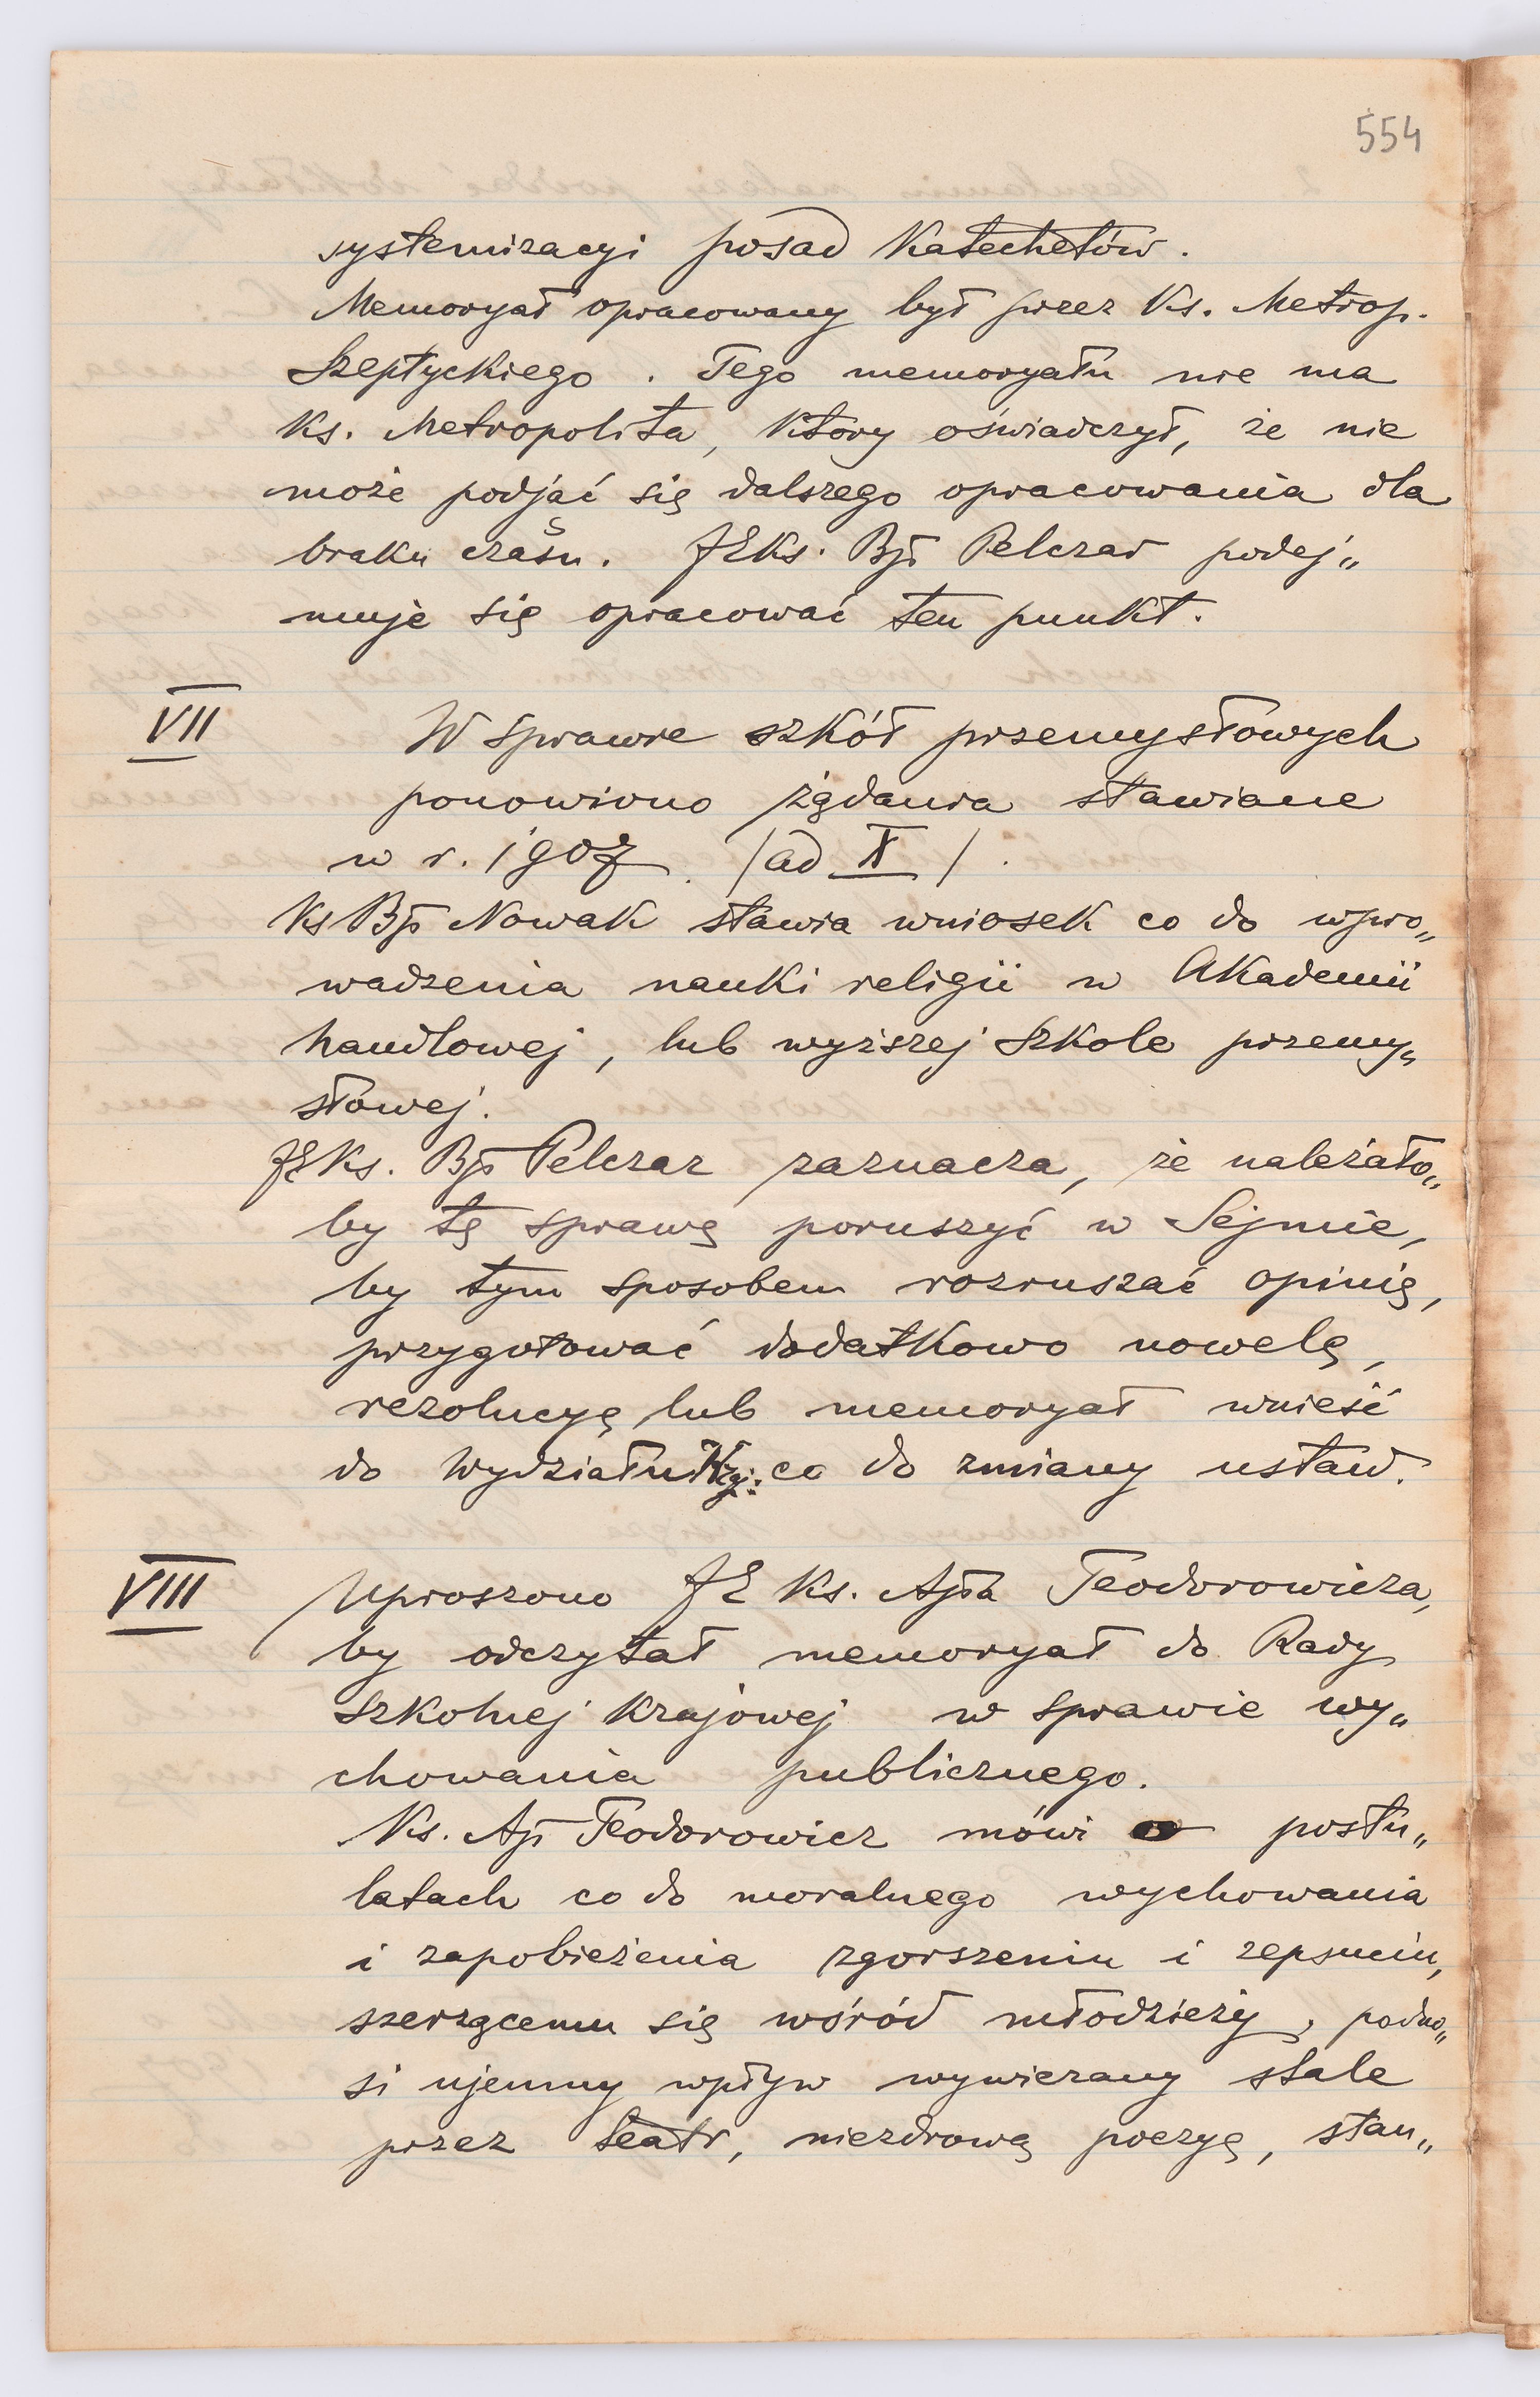 554
systemizacyi posad Katechetów.
Memoryał opracowany był przez Ks. Metrop.
Szeptyckiego. Tego memoryału nie ma
Ks. Metropolita, który oświadczył, że nie
może podjać się dalszego opracowania dla
braku czasu. JEKs. Bp Pelczar podej„
muje się opracować ten punkt.
VII W sprawie szkół przemysłowych
ponowiono żądania stawiane
w r. 1907. /ad X/.
Ks Bp Nowak stawia wniosek co do wpro„
wadzenia nauki religii w Akademii
handlowej, lub wyższej Szkole przemy„
słowej.
JEKs. Bp Pelczar zaznacza, że należało„
by tę sprawę poruszyć w Sejmie,
by tym sposobem rozruszać opinię,
przygotować dodatkowo nowelę,
rezolucyę lub memoryał wnieść
do Wydziału co do zmiany ustaw.
VIII Uproszono JE Ks. Apa Teodorowicza,
by odczytał memoryał do Rady
szkolnej Krajowej w sprawie wy„
chowania publicznego.
Ks. Ap Teodorowicz mówi o postu„
latach co do moralnego wychowania
i zapobieżenia zgorszeniu i zepsuciu,
szerzącemu się wśród młodzieży, podno„
si ujemny wpływ wywierany stale
przez teatr, niezdrową poezyę, stan„